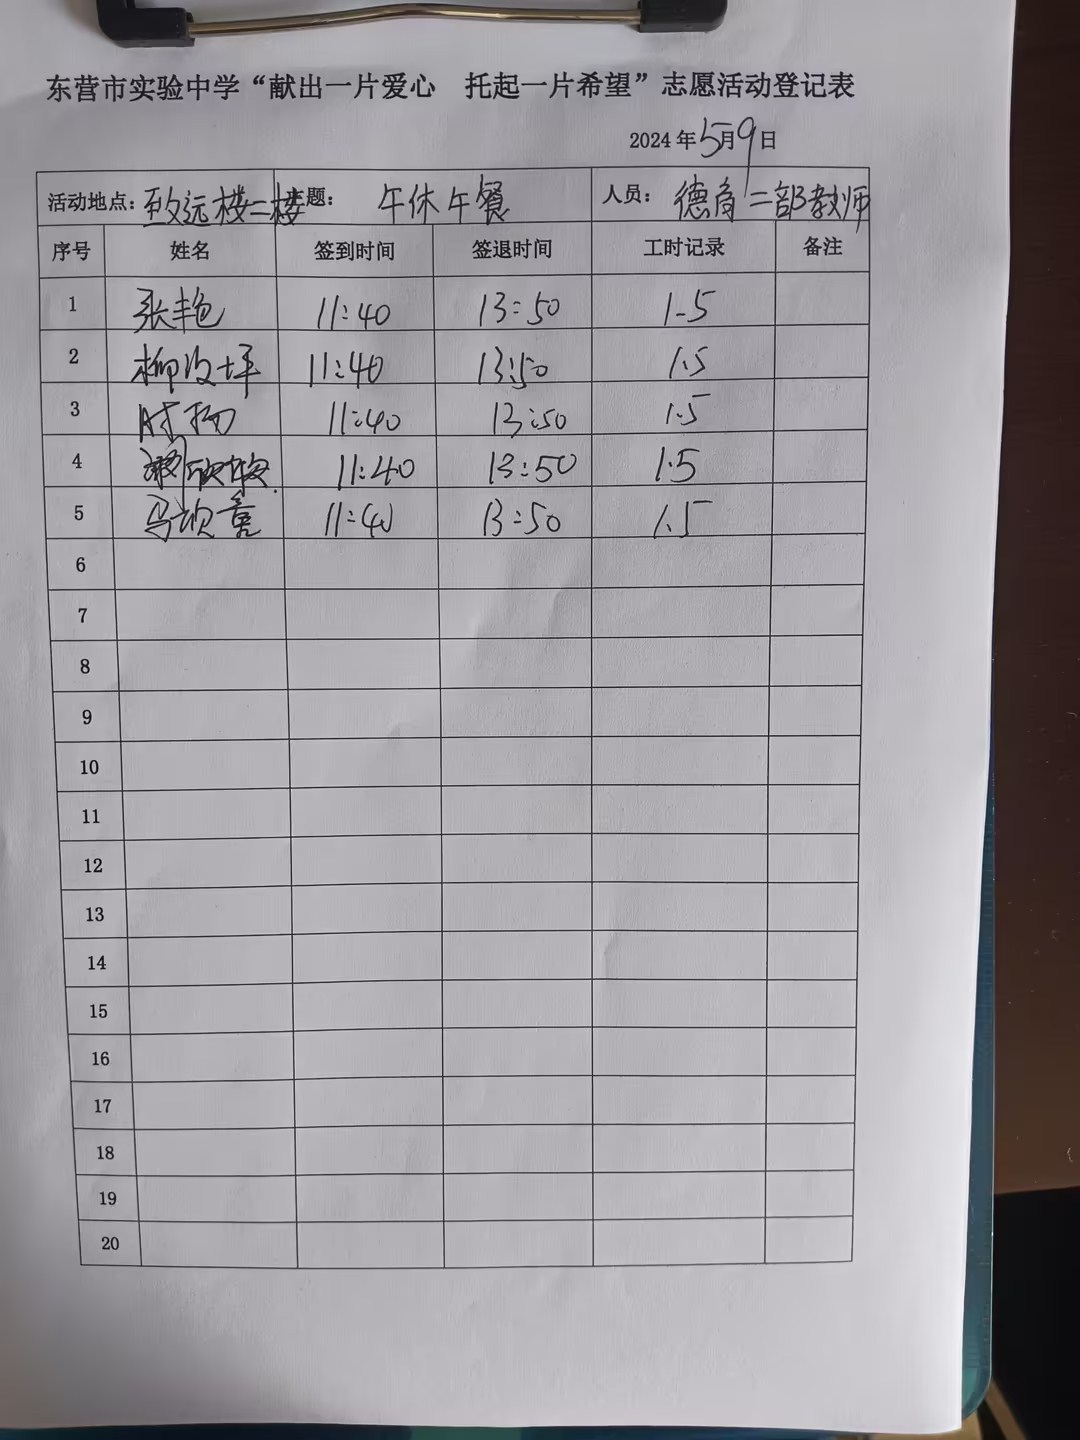 东营市实验中学“献出一片爱心 托起一片希望”志愿活动登记表
2024年5月9日
活动地点：致远楼二楼 主题： 午休午餐 人员： 德育二部教师
序号 姓名 签到时间 签退时间 工时记录 备注
1 张艳 11:40 13:50 1.5
2 柳 坪 11:40 13:50 1.5
3 时 11:40 13:50 1.5
4 11:40 13:50 1.5
5 马 11:40 13:50 1.5
6
7
8
9
10
11
12
13
14
15
16
17
18
19
20